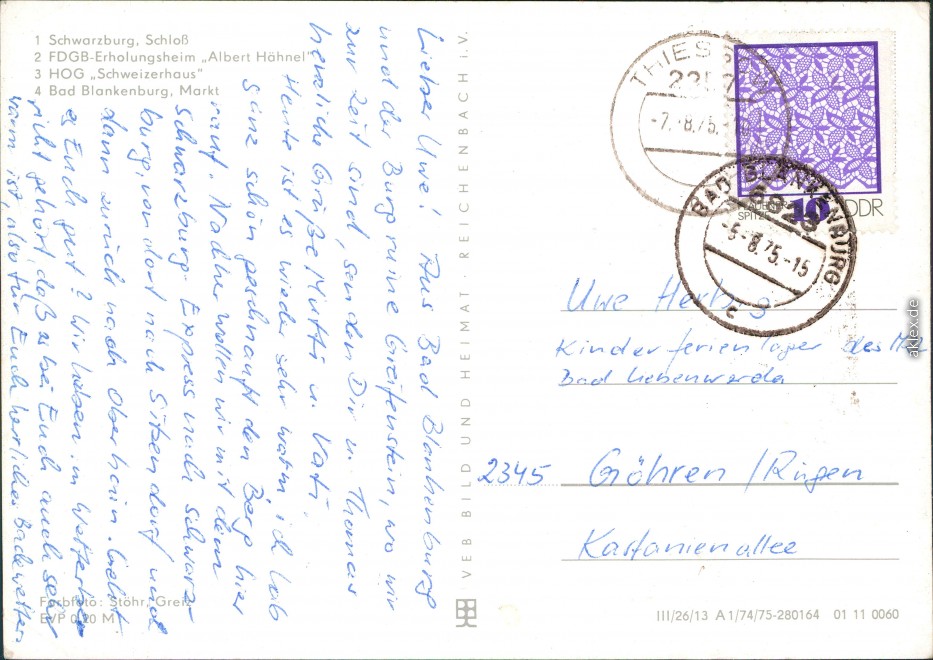 1 Schwarzburg, Schloß
2 FDGB-Erholungsheim „Albert Hähnel"
3 HOG „Schweizerhaus"
4 Bad Blankenburg, Markt
Lieber Uwe! Aus Bad Blankenburg
und der Burgruine Greifenstein, wo wir
zur Zeit sind, senden Dir u. Thomas
herzliche Grüße Mutti u. Vati.
Heute ist es wieder sehr warm, ich hab
ganz schön geschnauft den Berg hier
rauf. Nachher wollen wir mit dem
Schwarzburg-Express nach Schwarz-
burg, von dort nach Sitzendorf und
dann zurück nach Oberhain. Geht
es Euch gut? Wir haben im Wetterbe-
richt gehört, daß es bei Euch auch sehr
warm ist, also für Euch herrliches Badewetter.
Farbfoto: Stöhr, Greiz
EVP 0,20 M
VEB BILD UND HEIMAT · REICHENBACH i. V.
THIES
-7.-8.75.-
SPITZE
10
DDR
BAD BLANKENBURG
6823
-5.-8.75.-15
c
Uwe
Kinderferienlager des
Bad Liebenwerda
2345 Göhren / Rügen
Kastanienallee
III/26/13 A 1/74/75-280164 01 11 0060
aklex.de